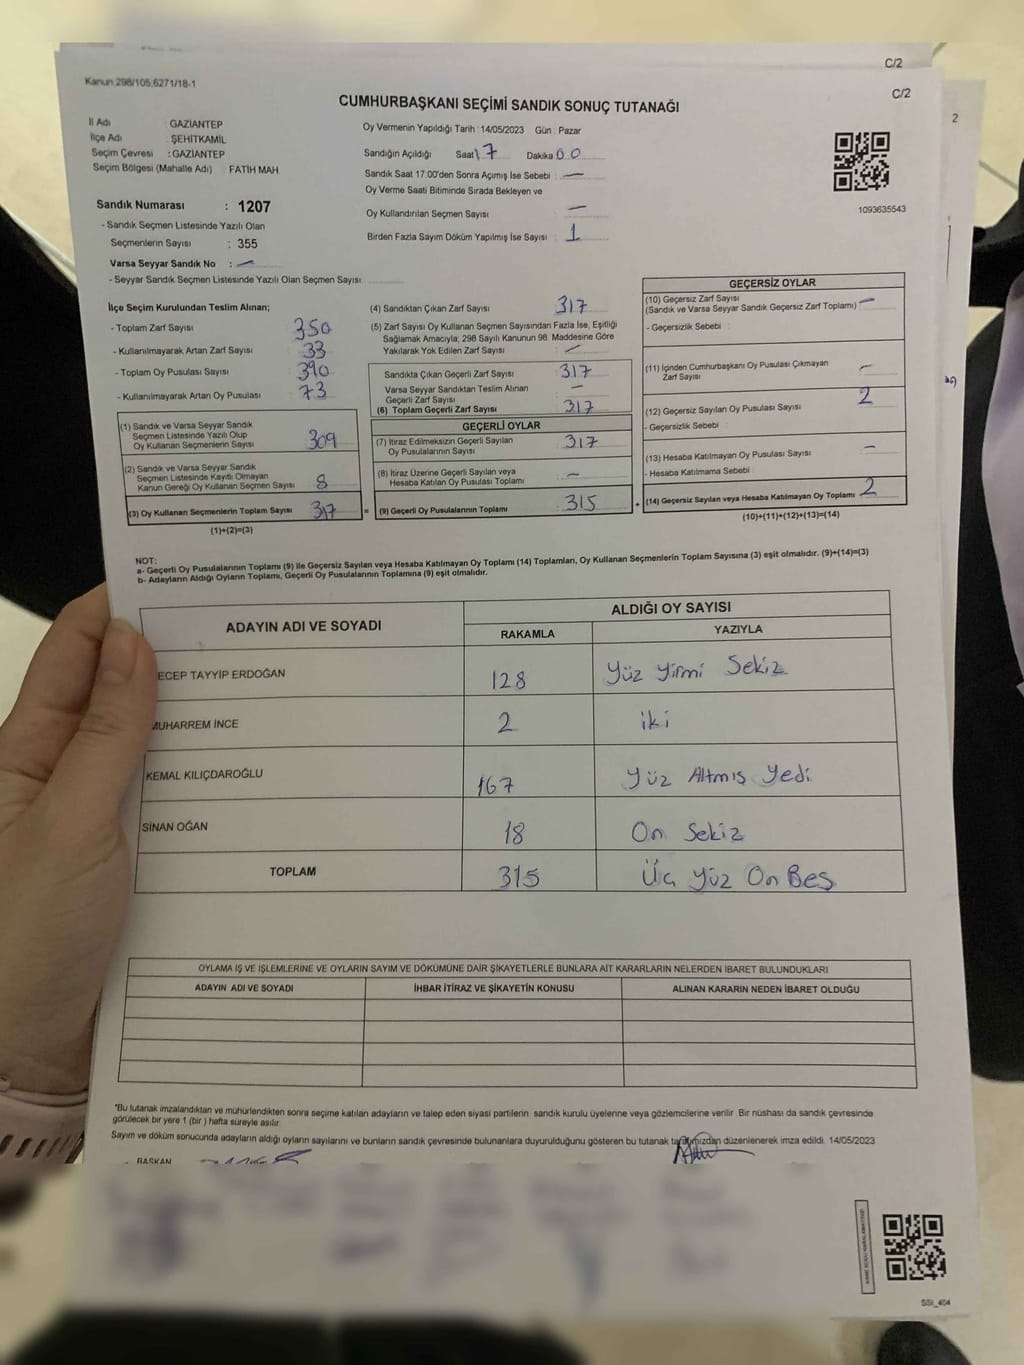 C/2
Kanun:298/105,6271/18-1
C/2
CUMHURBAŞKANI SEÇİMİ SANDIK SONUÇ TUTANAĞI
2
İl Adı : GAZİANTEP
İlçe Adı : ŞEHİTKAMİL
Seçim Çevresi : GAZİANTEP
Seçim Bölgesi (Mahalle Adı) FATİH MAH
Oy Vermenin Yapıldığı Tarih : 14/05/2023 Gün : Pazar
Sandığın Açıldığı Saat 17 Dakika 00
Sandık Saat 17.00'den Sonra Açımış İse Sebebi : —
Oy Verme Saati Bitiminde Sırada Bekleyen ve
Oy Kullandırılan Seçmen Sayısı : —
Birden Fazla Sayım Döküm Yapılmış İse Sayısı : 1
1093635543
Sandık Numarası : 1207
- Sandık Seçmen Listesinde Yazılı Olan
Seçmenlerin Sayısı : 355
Varsa Seyyar Sandık No : —
- Seyyar Sandık Seçmen Listesinde Yazılı Olan Seçmen Sayısı :
İlçe Seçim Kurulundan Teslim Alınan;
- Toplam Zarf Sayısı : 350
- Kullanılmayarak Artan Zarf Sayısı : 33
- Toplam Oy Pusulası Sayısı : 390
- Kullanılmayarak Artan Oy Pusulası : 73
(1) Sandık ve Varsa Seyyar Sandık
Seçmen Listesinde Yazılı Olup
Oy Kullanan Seçmenlerin Sayısı : 309
(2) Sandık ve Varsa Seyyar Sandık
Seçmen Listesinde Kayıtlı Olmayan
Kanun Gereği Oy Kullanan Seçmen Sayısı : 8
(3) Oy Kullanan Seçmenlerin Toplam Sayısı : 317
(1)+(2)=(3)
(4) Sandıktan Çıkan Zarf Sayısı : 317
(5) Zarf Sayısı Oy Kullanan Seçmen Sayısından Fazla İse, Eşitliği
Sağlamak Amacıyla; 298 Sayılı Kanunun 98. Maddesine Göre
Yakılarak Yok Edilen Zarf Sayısı : —
Sandıkta Çıkan Geçerli Zarf Sayısı : 317
Varsa Seyyar Sandıktan Teslim Alınan
Geçerli Zarf Sayısı : —
(6) Toplam Geçerli Zarf Sayısı : 317
GEÇERLİ OYLAR
(7) İtiraz Edilmeksizin Geçerli Sayılan
Oy Pusulalarının Sayısı : 317
(8) İtiraz Üzerine Geçerli Sayılan veya
Hesaba Katılan Oy Pusulası Toplamı : —
= (9) Geçerli Oy Pusulalarının Toplamı : 315
GEÇERSİZ OYLAR
(10) Geçersiz Zarf Sayısı : —
(Sandık ve Varsa Seyyar Sandık Geçersiz Zarf Toplamı)
- Geçersizlik Sebebi :
(11) İçinden Cumhurbaşkanı Oy Pusulası Çıkmayan
Zarf Sayısı : —
(12) Geçersiz Sayılan Oy Pusulası Sayısı : 2
- Geçersizlik Sebebi :
(13) Hesaba Katılmayan Oy Pusulası Sayısı : —
- Hesaba Katılmama Sebebi :
+ (14) Geçersiz Sayılan veya Hesaba Katılmayan Oy Toplamı : 2
(10)+(11)+(12)+(13)=(14)
NOT:
a- Geçerli Oy Pusulalarının Toplamı (9) ile Geçersiz Sayılan veya Hesaba Katılmayan Oy Toplamı (14) Toplamları, Oy Kullanan Seçmenlerin Toplam Sayısına (3) eşit olmalıdır. (9)+(14)=(3)
b- Adayların Aldığı Oyların Toplamı, Geçerli Oy Pusulalarının Toplamına (9) eşit olmalıdır.
ADAYIN ADI VE SOYADI ALDIĞI OY SAYISI
RAKAMLA YAZIYLA
ECEP TAYYİP ERDOĞAN 128 Yüz Yirmi Sekiz
MUHARREM İNCE 2 iki
KEMAL KILIÇDAROĞLU 167 Yüz Altmış Yedi
SİNAN OĞAN 18 On Sekiz
TOPLAM 315 Üç Yüz On Beş
OYLAMA İŞ VE İŞLEMLERİNE VE OYLARIN SAYIM VE DÖKÜMÜNE DAİR ŞİKAYETLERLE BUNLARA AİT KARARLARIN NELERDEN İBARET BULUNDUKLARI
ADAYIN ADI VE SOYADI İHBAR İTİRAZ VE ŞİKAYETİN KONUSU ALINAN KARARIN NEDEN İBARET OLDUĞU
"Bu tutanak imzalandıktan ve mühürlendikten sonra seçime katılan adayların ve talep eden siyasi partilerin sandık kurulu üyelerine veya gözlemcilerine verilir. Bir nüshası da sandık çevresinde
görülecek bir yere 1 (bir ) hafta süreyle asılır.
Sayım ve döküm sonucunda adayların aldığı oyların sayılarını ve bunların sandık çevresinde bulunanlara duyurulduğunu gösteren bu tutanak tarafımızdan düzenlenerek imza edildi. 14/05/2023
BAŞKAN
SSI_404